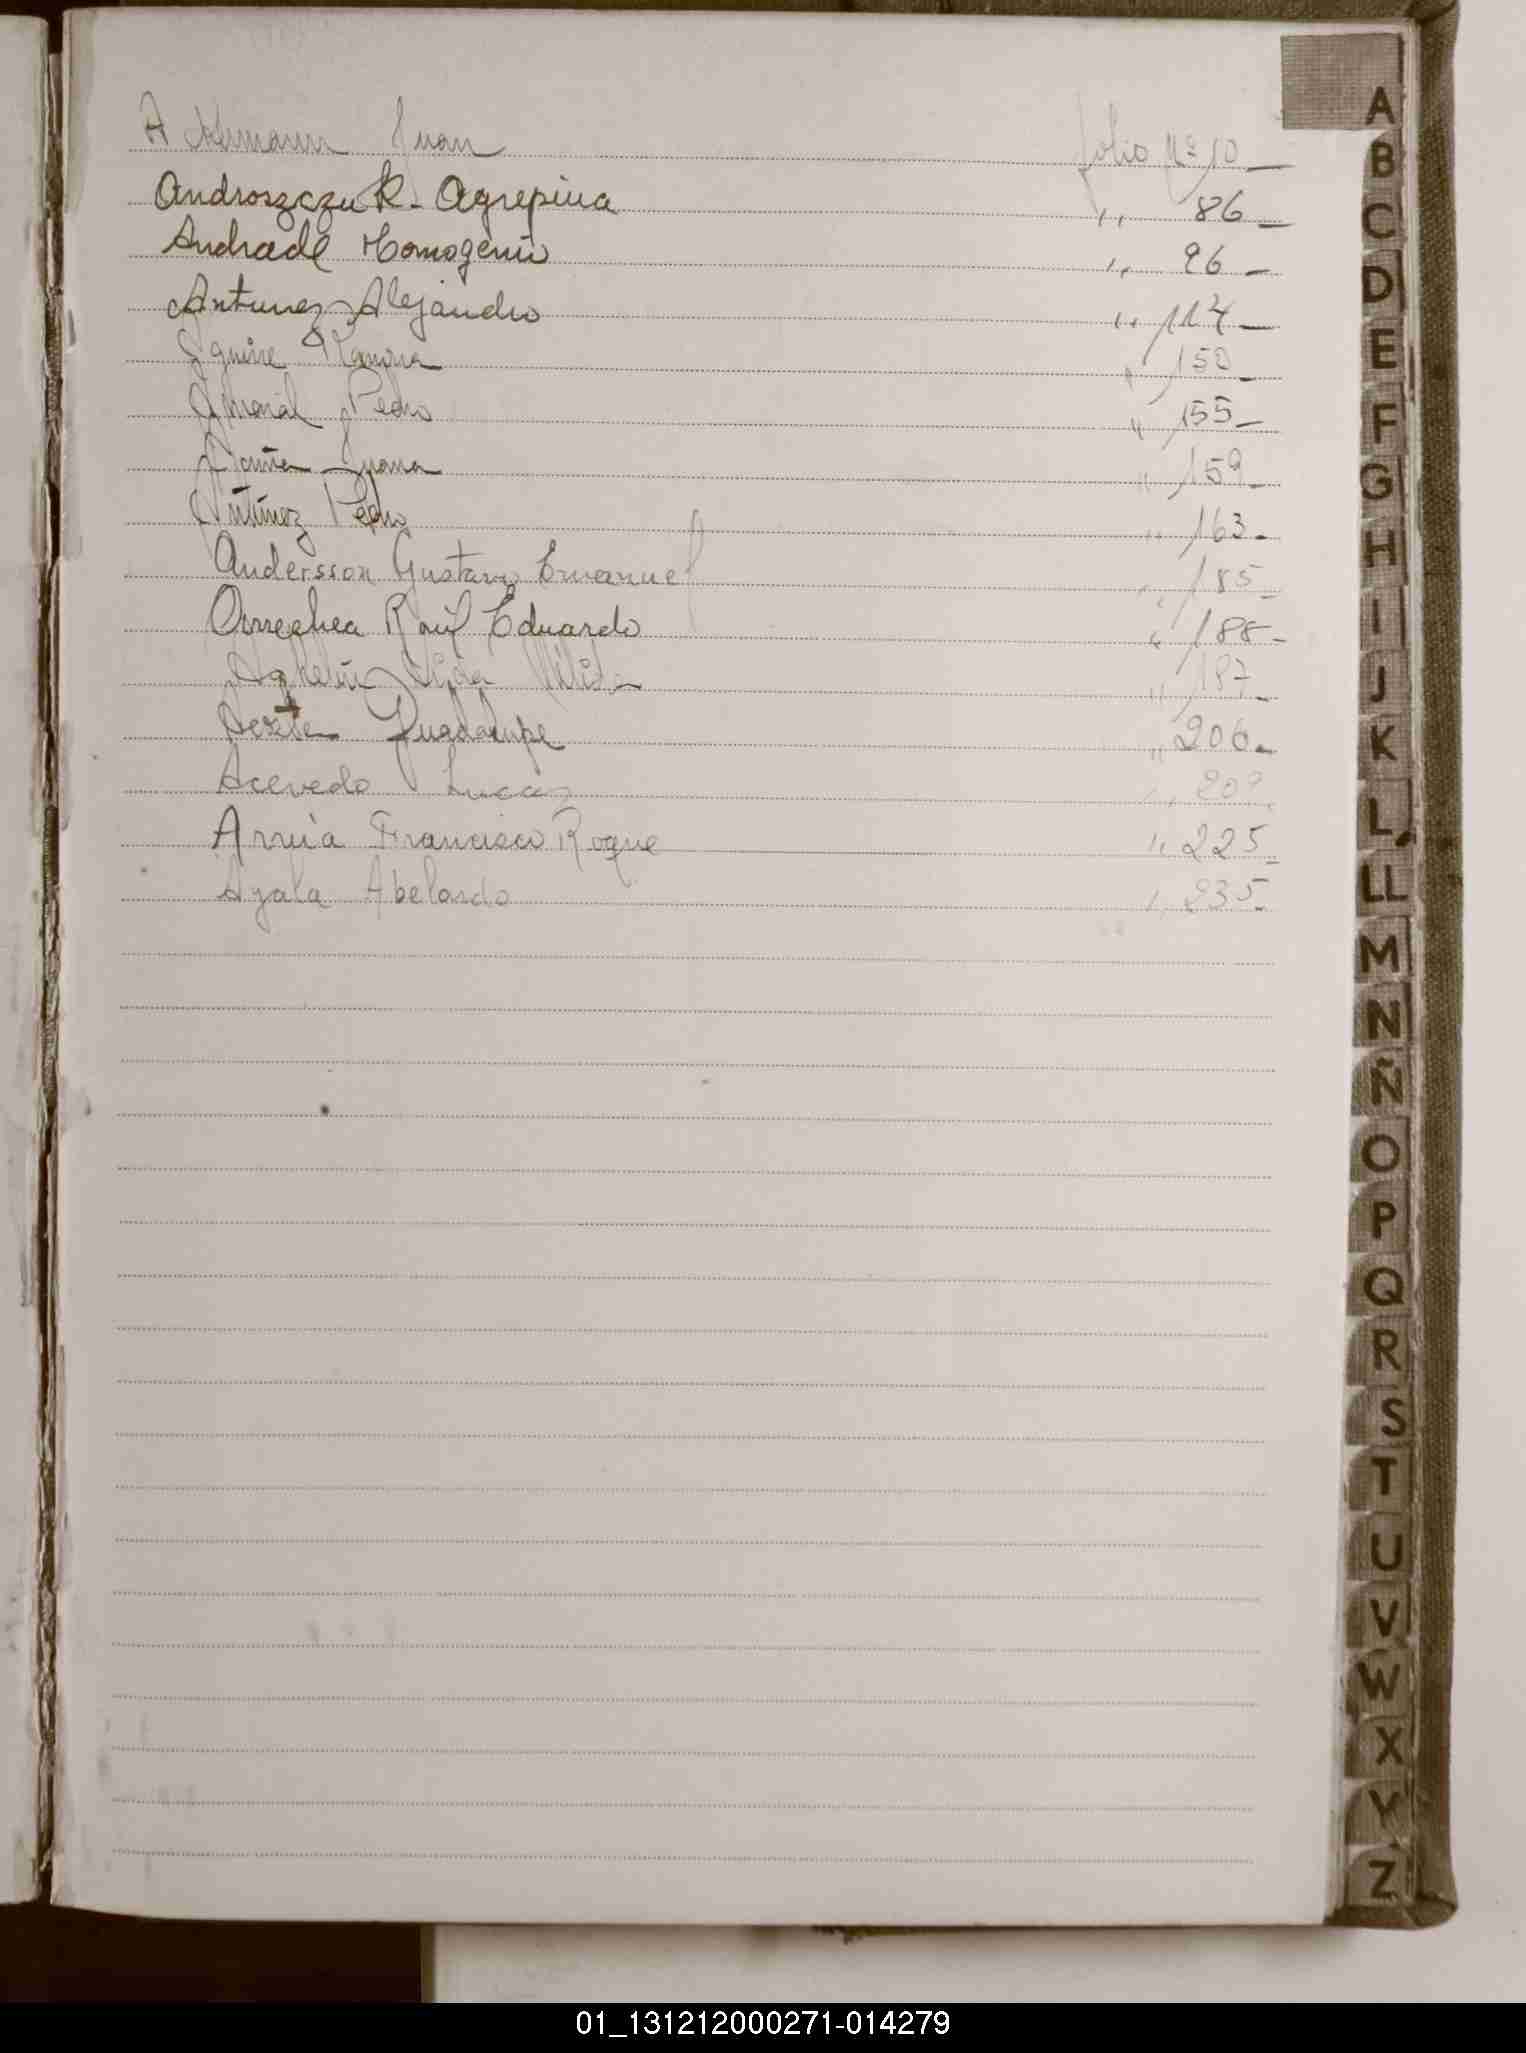 Juan folio Nº 10
Androszczuk - Agrepina ,, 86 -
Andrade Homogenio ,, 96 -
Antunez Alejandro ,, 114 -
Ramona ,, 150 -
Amaral Pedro ,, 155 -
Juana ,, 159 -
Antúnez Pedro ,, 163 -
Andersson Gustavo Emanuel ,, 185 -
Arrechea Raúl Eduardo ,, 188 -
,, 187 -
Guadalupe ,, 206 -
Acevedo Lucas ,, 209
Arrúa Francisco Roque ,, 225 -
Ayala Abelardo ,, 235 -
A
B
C
D
E
F
G
H
I
J
K
L
LL
M
N
Ñ
O
P
Q
R
S
T
U
V
W
X
Y
Z
01_131212000271-014279